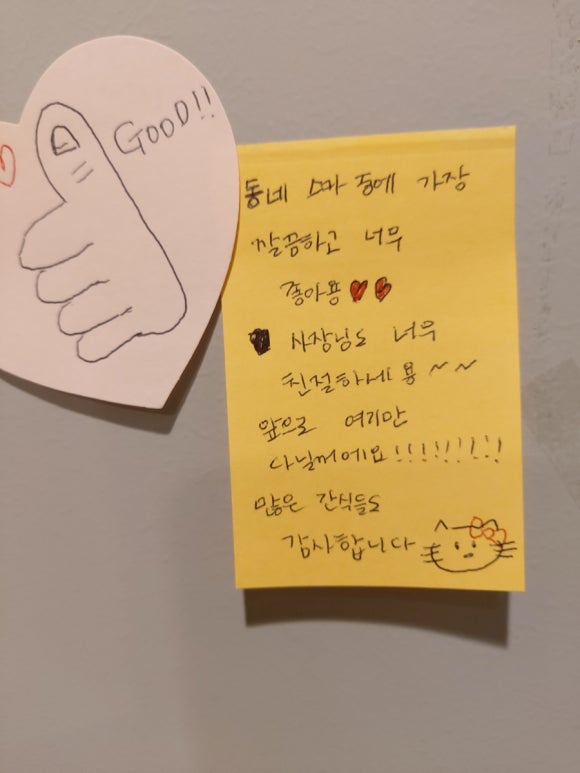 GOOD!!
동네 스카 중에 가장
깔끔하고 너무
좋아용
사장님도 너무
친절하세용~~
앞으로 여기만
다닐꺼에요!!!!!!!!
많은 간식들도
감사합니다